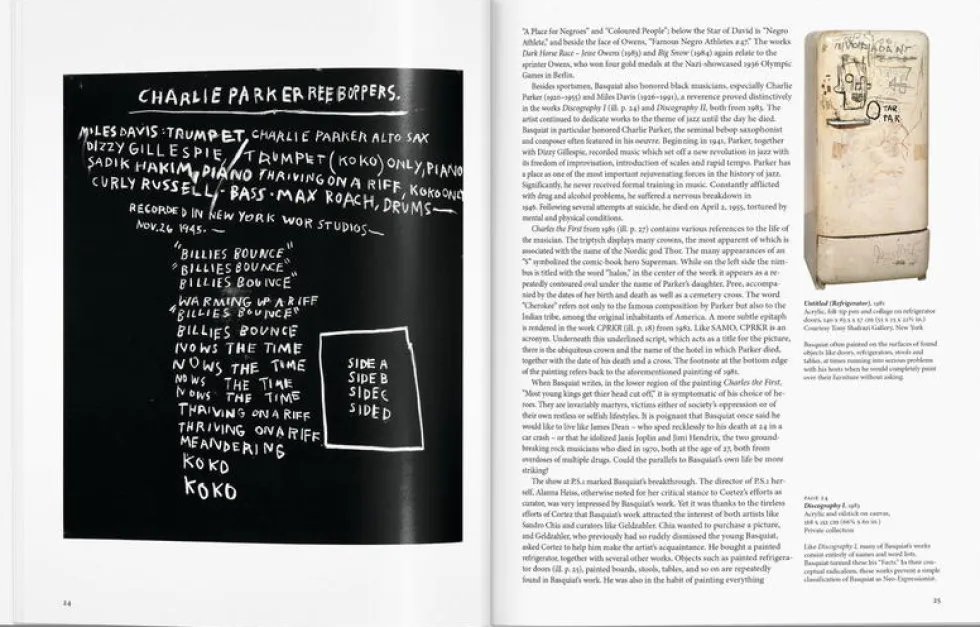 CHARLIE PARKER REEBOPPERS.
MILES DAVIS: TRUMPET, CHARLIE PARKER ALTO SAX
DIZZY GILLESPIE, TRUMPET (KOKO) ONLY, PIANO
SADIK HAKIM, PIANO THRIVING ON A RIFF, KOKO ONLY
CURLY RUSSELL, - BASS - MAX ROACH, DRUMS—
RECORDED IN NEW YORK WOR STUDIOS—
NOV. 26 1945. —
"BILLIES BOUNCE"
"BILLIES BOUNCE"
BILLIES BOUNCE"
WARMING UP A RIFF
"BILLIES BOUNCE"
BILLIES BOUNCE
NOWS THE TIME
NOWS THE TIME
NOWS THE TIME
NOWS THE TIME
THRIVING ON A RIFF
THRIVING ON A RIFF
MEANDERING
KOKO
KOKO
SIDE A
SIDE B
SIDE C
SIDE D
24
"A Place for Negroes" and "Coloured People"; below the Star of David is "Negro
Athlete," and beside the face of Owens, "Famous Negro Athletes #47." The works
Dark Horse Race – Jesse Owens (1983) and Big Snow (1984) again relate to the
sprinter Owens, who won four gold medals at the Nazi-showcased 1936 Olympic
Games in Berlin.
Besides sportsmen, Basquiat also honored black musicians, especially Charlie
Parker (1920–1955) and Miles Davis (1926–1991), a reverence proved distinctively
in the works Discography I (ill. p. 24) and Discography II, both from 1983. The
artist continued to dedicate works to the theme of jazz until the day he died.
Basquiat in particular honored Charlie Parker, the seminal bebop saxophonist
and composer often featured in his oeuvre. Beginning in 1941, Parker, together
with Dizzy Gillespie, recorded music which set off a new revolution in jazz with
its freedom of improvisation, introduction of scales and rapid tempo. Parker has
a place as one of the most important rejuvenating forces in the history of jazz.
Significantly, he never received formal training in music. Constantly afflicted
with drug and alcohol problems, he suffered a nervous breakdown in
1946. Following several attempts at suicide, he died on April 2, 1955, tortured by
mental and physical conditions.
Charles the First from 1982 (ill. p. 27) contains various references to the life of
the musician. The triptych displays many crowns, the most apparent of which is
associated with the name of the Nordic god Thor. The many appearances of an
"S" symbolized the comic-book hero Superman. While on the left side the nim-
bus is titled with the word "halos," in the center of the work it appears as a re-
peatedly contoured oval under the name of Parker's daughter, Pree, accompa-
nied by the dates of her birth and death as well as a cemetery cross. The word
"Cherokee" refers not only to the famous composition by Parker but also to the
Indian tribe, among the original inhabitants of America. A more subtle epitaph
is rendered in the work CPRKR (ill. p. 18) from 1982. Like SAMO, CPRKR is an
acronym. Underneath this underlined script, which acts as a title for the picture,
there is the ubiquitous crown and the name of the hotel in which Parker died,
together with the date of his death and a cross. The footnote at the bottom edge
of the painting refers back to the aforementioned painting of 1982.
When Basquiat writes, in the lower region of the painting Charles the First,
"Most young kings get thier head cut off," it is symptomatic of his choice of he-
roes. They are invariably martyrs, victims either of society's oppression or of
their own restless or selfish lifestyles. It is poignant that Basquiat once said he
would like to live like James Dean – who sped recklessly to his death at 24 in a
car crash – or that he idolized Janis Joplin and Jimi Hendrix, the two ground-
breaking rock musicians who died in 1970, both at the age of 27, both from
overdoses of multiple drugs. Could the parallels to Basquiat's own life be more
striking?
The show at P.S.1 marked Basquiat's breakthrough. The director of P.S.1 her-
self, Alanna Heiss, otherwise noted for her critical stance to Cortez's efforts as
curator, was very impressed by Basquiat's work. Yet it was thanks to the tireless
efforts of Cortez that Basquiat's work attracted the interest of both artists like
Sandro Chia and curators like Geldzahler. Chia wanted to purchase a picture,
and Geldzahler, who previously had so rudely dismissed the young Basquiat,
asked Cortez to help him make the artist's acquaintance. He bought a painted
refrigerator, together with several other works. Objects such as painted refrigera-
tor doors (ill. p. 25), painted boards, stools, tables, and so on are repeatedly
found in Basquiat's work. He was also in the habit of painting everything
TAR
PAR
Untitled (Refrigerator), 1981
Acrylic, felt-tip pen and collage on refrigerator
Courtesy Tony Shafrazi Gallery, New York
Basquiat often painted on the surfaces of found
objects like doors, refrigerators, stools and
tables, at times running into serious problems
with his hosts when he would completely paint
over their furniture without asking.
PAGE 24
Discography I, 1983
Acrylic and oilstick on canvas,
168 x 152 cm (66¼ x 60 in.)
Private collection
Like Discography I, many of Basquiat's works
consist entirely of names and word lists.
Basquiat termed these his "Facts." In their con-
ceptual radicalism, these works prevent a simple
classification of Basquiat as Neo-Expressionist.
25